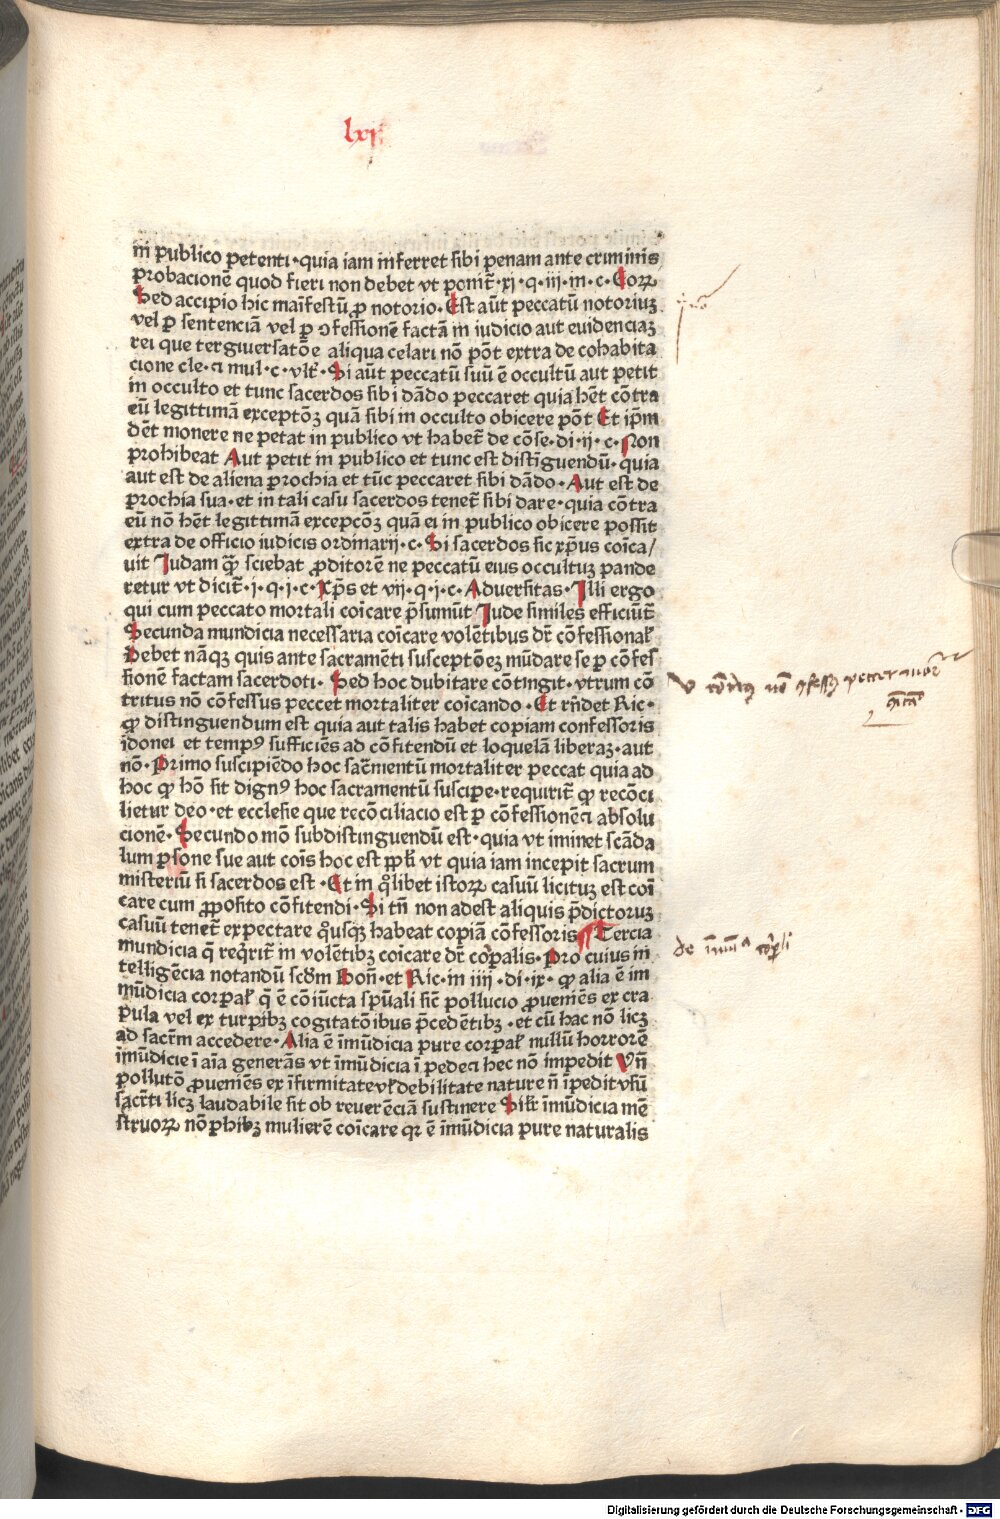 lxi
in publico petenti·quia iam inferret sibi penam ante criminis
probacionē quod fieri non debet vt ponit̄·xi·q·iii·in·c·Eoꝝ
Sed accipio hic maīfestū ꝓ notorio·Est aūt peccatū notoriuꝫ
vel ꝑ sentenciā vel ꝑ ꝯfessionē factā in iudicio aut euidenciaꝫ
rei que tergiuersatōe aliqua celari nō pōt extra de cohabita
cione cle·⁊ mul·c·vlt̄·Si aūt peccatū suū ē occultū aut petit
in occulto et tunc sacerdos sibi dādo peccaret quia hēt cōtra
eū legittimā exceptōꝫ quā sibi in occulto obicere pōt Et ip̄m
dēt monere ne petat in publico vt habet̄ de cōse·di·ij·c·Non
prohibeat Aut petit in publico et tunc est distīguendū·quia
aut est de aliena ꝑrochia et tūc peccaret sibi dādo·Aut est de
ꝑrochia sua·et in tali casu sacerdos tenet̄ sibi dare·quia cōtra
eū nō hēt legittimā excepcōꝫ quā ei in publico obicere possit
extra de officio iudicis ordinarij·c·Si sacerdos sic xp̄us coīca/
uit Iudam quē sciebat ꝓditorē ne peccatū eius occultuꝫ pande
retur vt dicit̄·i·q·i·c·Xp̄s et vij·q·i·c·Aduersitas·Illi ergo
qui cum peccato mortali coīcare p̄sumūt Iude similes efficiūt̄
Secunda mundicia necessaria coīcare volētibus dr̄ cōfessional̄
Debet nāqꝫ quis ante sacramēti susceptōeꝫ mūdare se ꝑ cōfes
sionē factam sacerdoti·Sed hoc dubitare cōtingit·vtrum cō
tritus nō cōfessus peccet mortaliter coicando·Et rn̄det Ric·
ꝙ distinguendum est quia aut talis habet copiam confessoris
īdonei et tempꝰ sufficiēs ad cōfitendū et loquelā liberaꝫ·aut
nō·Primo suscipiēdo hoc sacr̄mentū mortaliter peccat quia ad
hoc ꝙ hō sit dignꝰ hoc sacramentū suscipe·requirit̄ ꝙ recōci
lietur deo·et ecclesie que recōciliacio est ꝑ cōfessionē⁊ absolu
cionē·Secundo mō subdistinguendū est·quia vt iminet scāda
lum ꝑsone sue aut coīs hoc est pp̄li vt quia iam incepit sacrum
misteriū si sacerdos est·Et in qͦlibet istoꝝ casuū licituꝫ est coī
care cum ꝓposito cōfitendi·Si tn̄ non adest aliquis p̄dictoruꝫ
casuū tenet̄ expectare qͦusqꝫ habeat copiā cōfessoris ¶Tercia
mundicia q̄ reqͥrit̄ in volētibꝫ coīcare dr̄ corꝑalis·Pro cuius in
telligēcia notandū scd̄m Bon̄·et Ric·in iiij·di·ix·ꝙ alia ē im
mūdicia corꝑal̄ q̄ ē cōiūcta spūali sic̄ pollucio ꝓueniēs ex cra
pula vel ex turpibꝫ cogitatōibus p̄cedētibꝫ·et cū hac nō licꝫ
ad sacr̄m accedere·Alia ē īmūdicia pure corꝑal̄ nullū horrorē
īmūdicie ī aīa generās vt īmūdicia ī pede⁊ hec nō impedit Vn̄
pollutō ꝓueniēs ex īfirmitate vl̄ debilitate nature n̄ īpedit vsū
sacr̄ti licꝫ laudabile sit ob reuerēciā sustinere Sil̄r īmūdicia mē
struoꝝ nō ꝓhibꝫ mulierē coīcare qꝛ ē īmūdicia pure naturalis
Digitalisierung gefördert durch die Deutsche Forschungsgemeinschaft - DFG